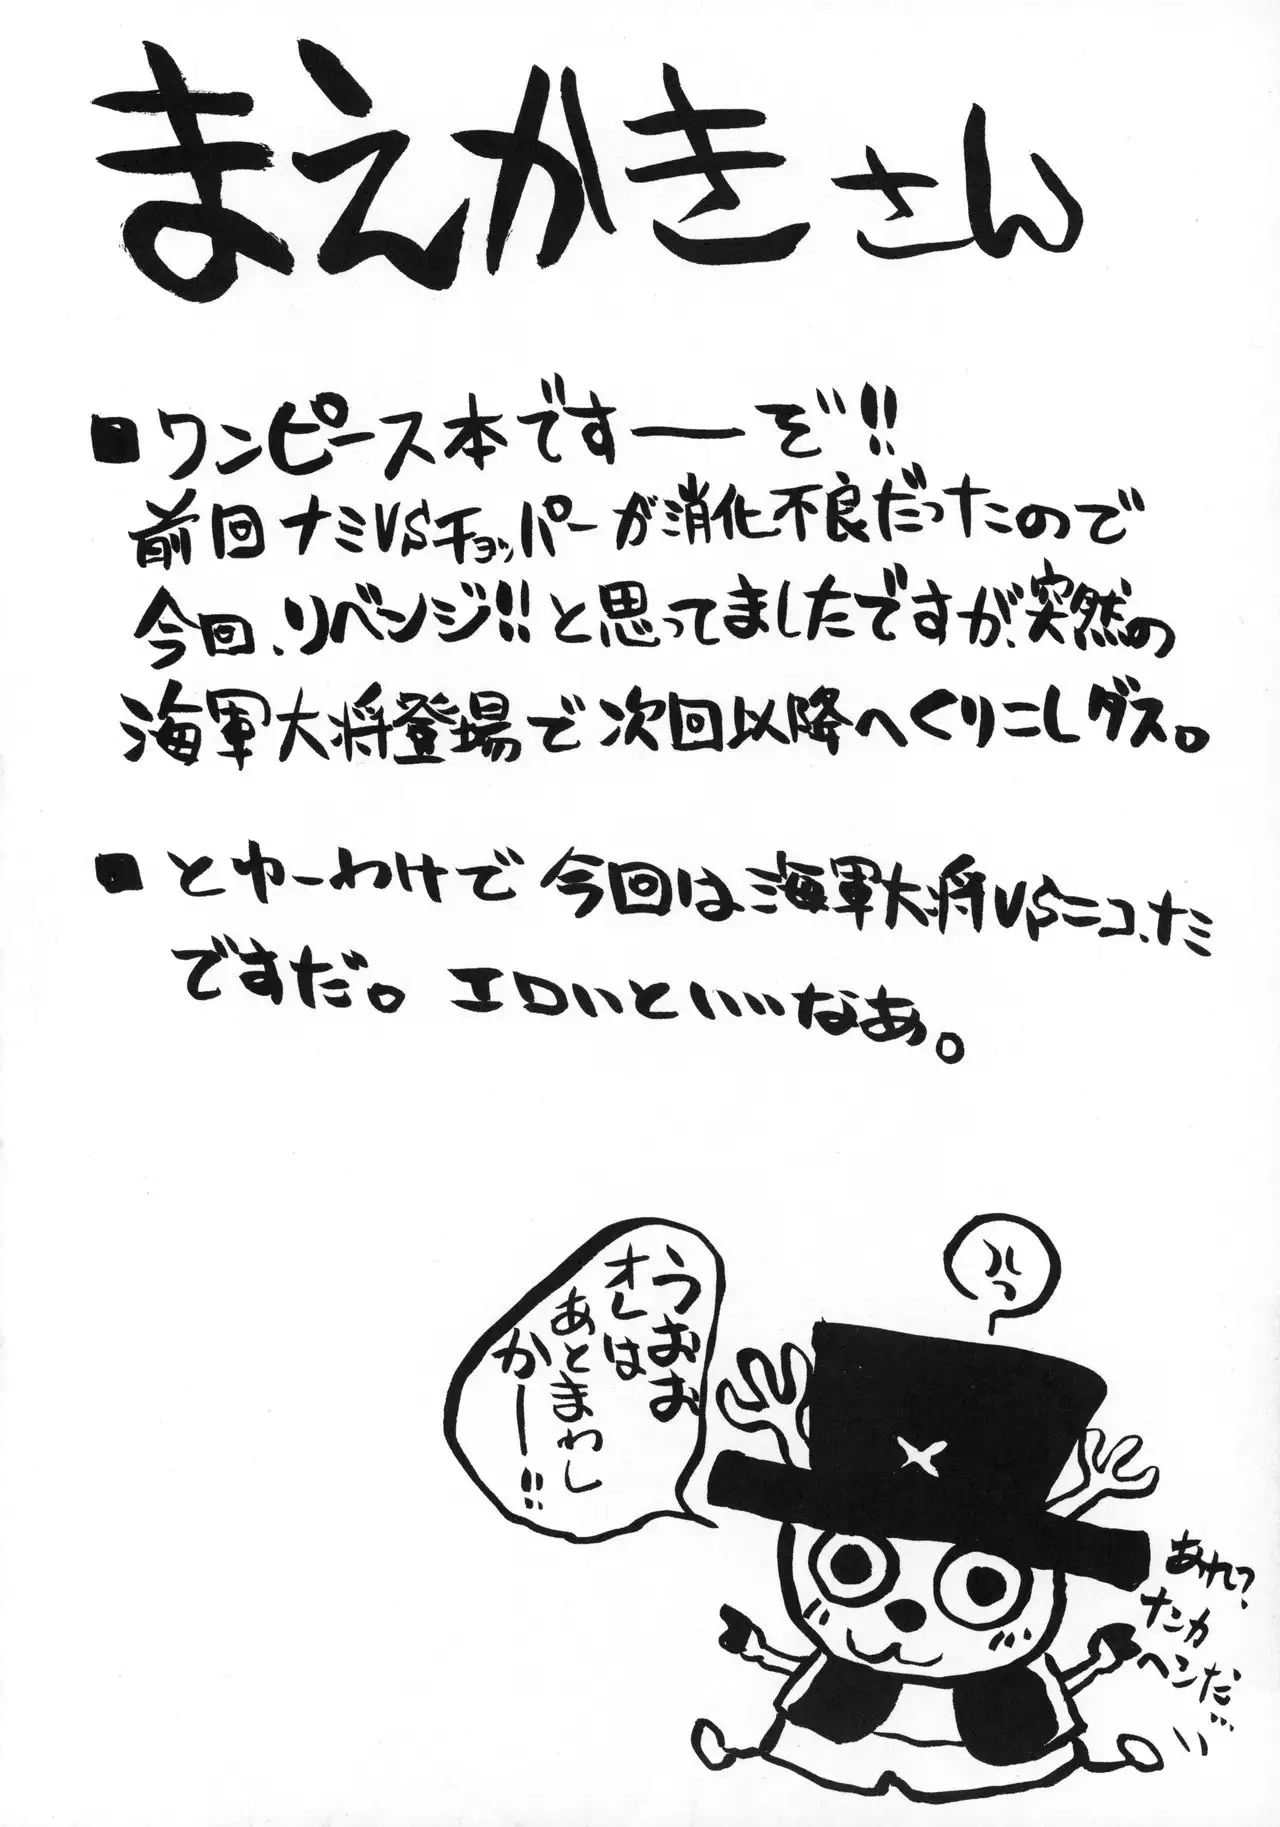 まえかきさん
■ワンピース本ですーーぞ!!
前回ナミVSチョッパーが消化不良だったので
今回、リベンジ!!と思ってましたですが、突然の
海軍大将登場で次回以降へくりこしダス。
■とゆーわけで今回は海軍大将VSニコ、ナミ
ですだ。エロいといいなあ。
うおお
オレは
あとまわし
かー!!
あれ?
ナンカ
ヘンだ…
い